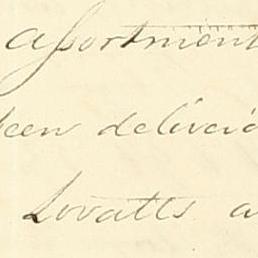 assortment
been delivered
Lovatts a